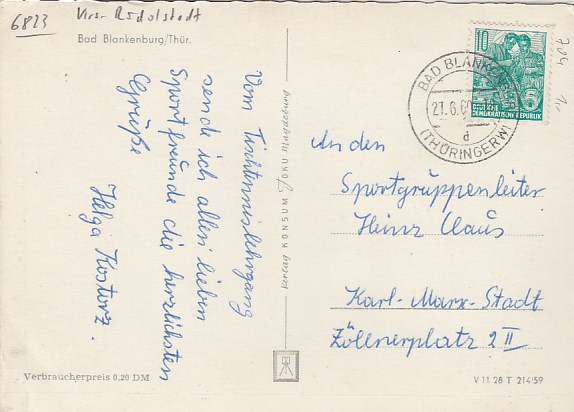 6823
Bad Blankenburg/Thür.
Vom Tischtennislehrgang
sende ich allen lieben
Sportfreunde die herzlichsten
Grüße
Helga Kostorz.
Verbraucherpreis 0,20 DM
Verlag KONSUM FOKU MAGDEBURG
10
DEUTSCHE
DEMOKRATISCHE REPUBLIK
BAD BLANKENBURG
d
(THÜRINGERW)
An den
Sportgruppenleiter
Heinz Claus
Karl-Marx-Stadt
Zöllnerplatz 2 II
V 11 28 T 214/59